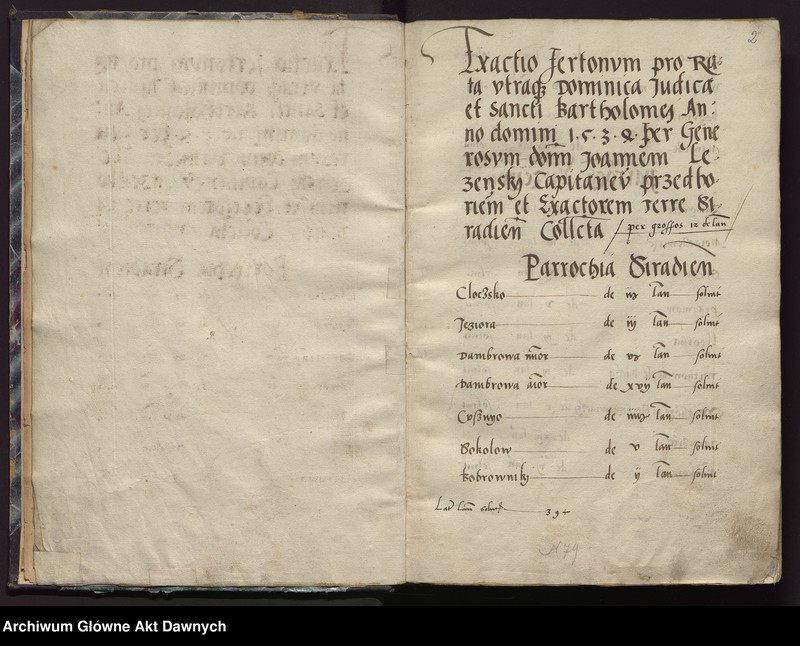 2
Exactio fertonum pro Ra-
ta utraq3 Dominica Judica
et Sancti Bartholomej An-
no domini 1.5.3.9. per Gene
rosum dom̄ Joannem Le-
zenskj Capitaneu przedbo-
riem et Exactorem Terre Si
radien̄ Collcta per grossos 12 de lan
Parrochia Siradien̄
Cloczsko de lan̄ solvit
Jeziora de iij lan̄ solvit
Dambrowa mior de lan̄ solvit
Dambrowa aior de xvij lan̄ solvit
de lan̄ solvit
Sokolow de v lan̄ solvit
Bobrownikj de ij lan̄ solvit
39
N 79
Archiwum Główne Akt Dawnych